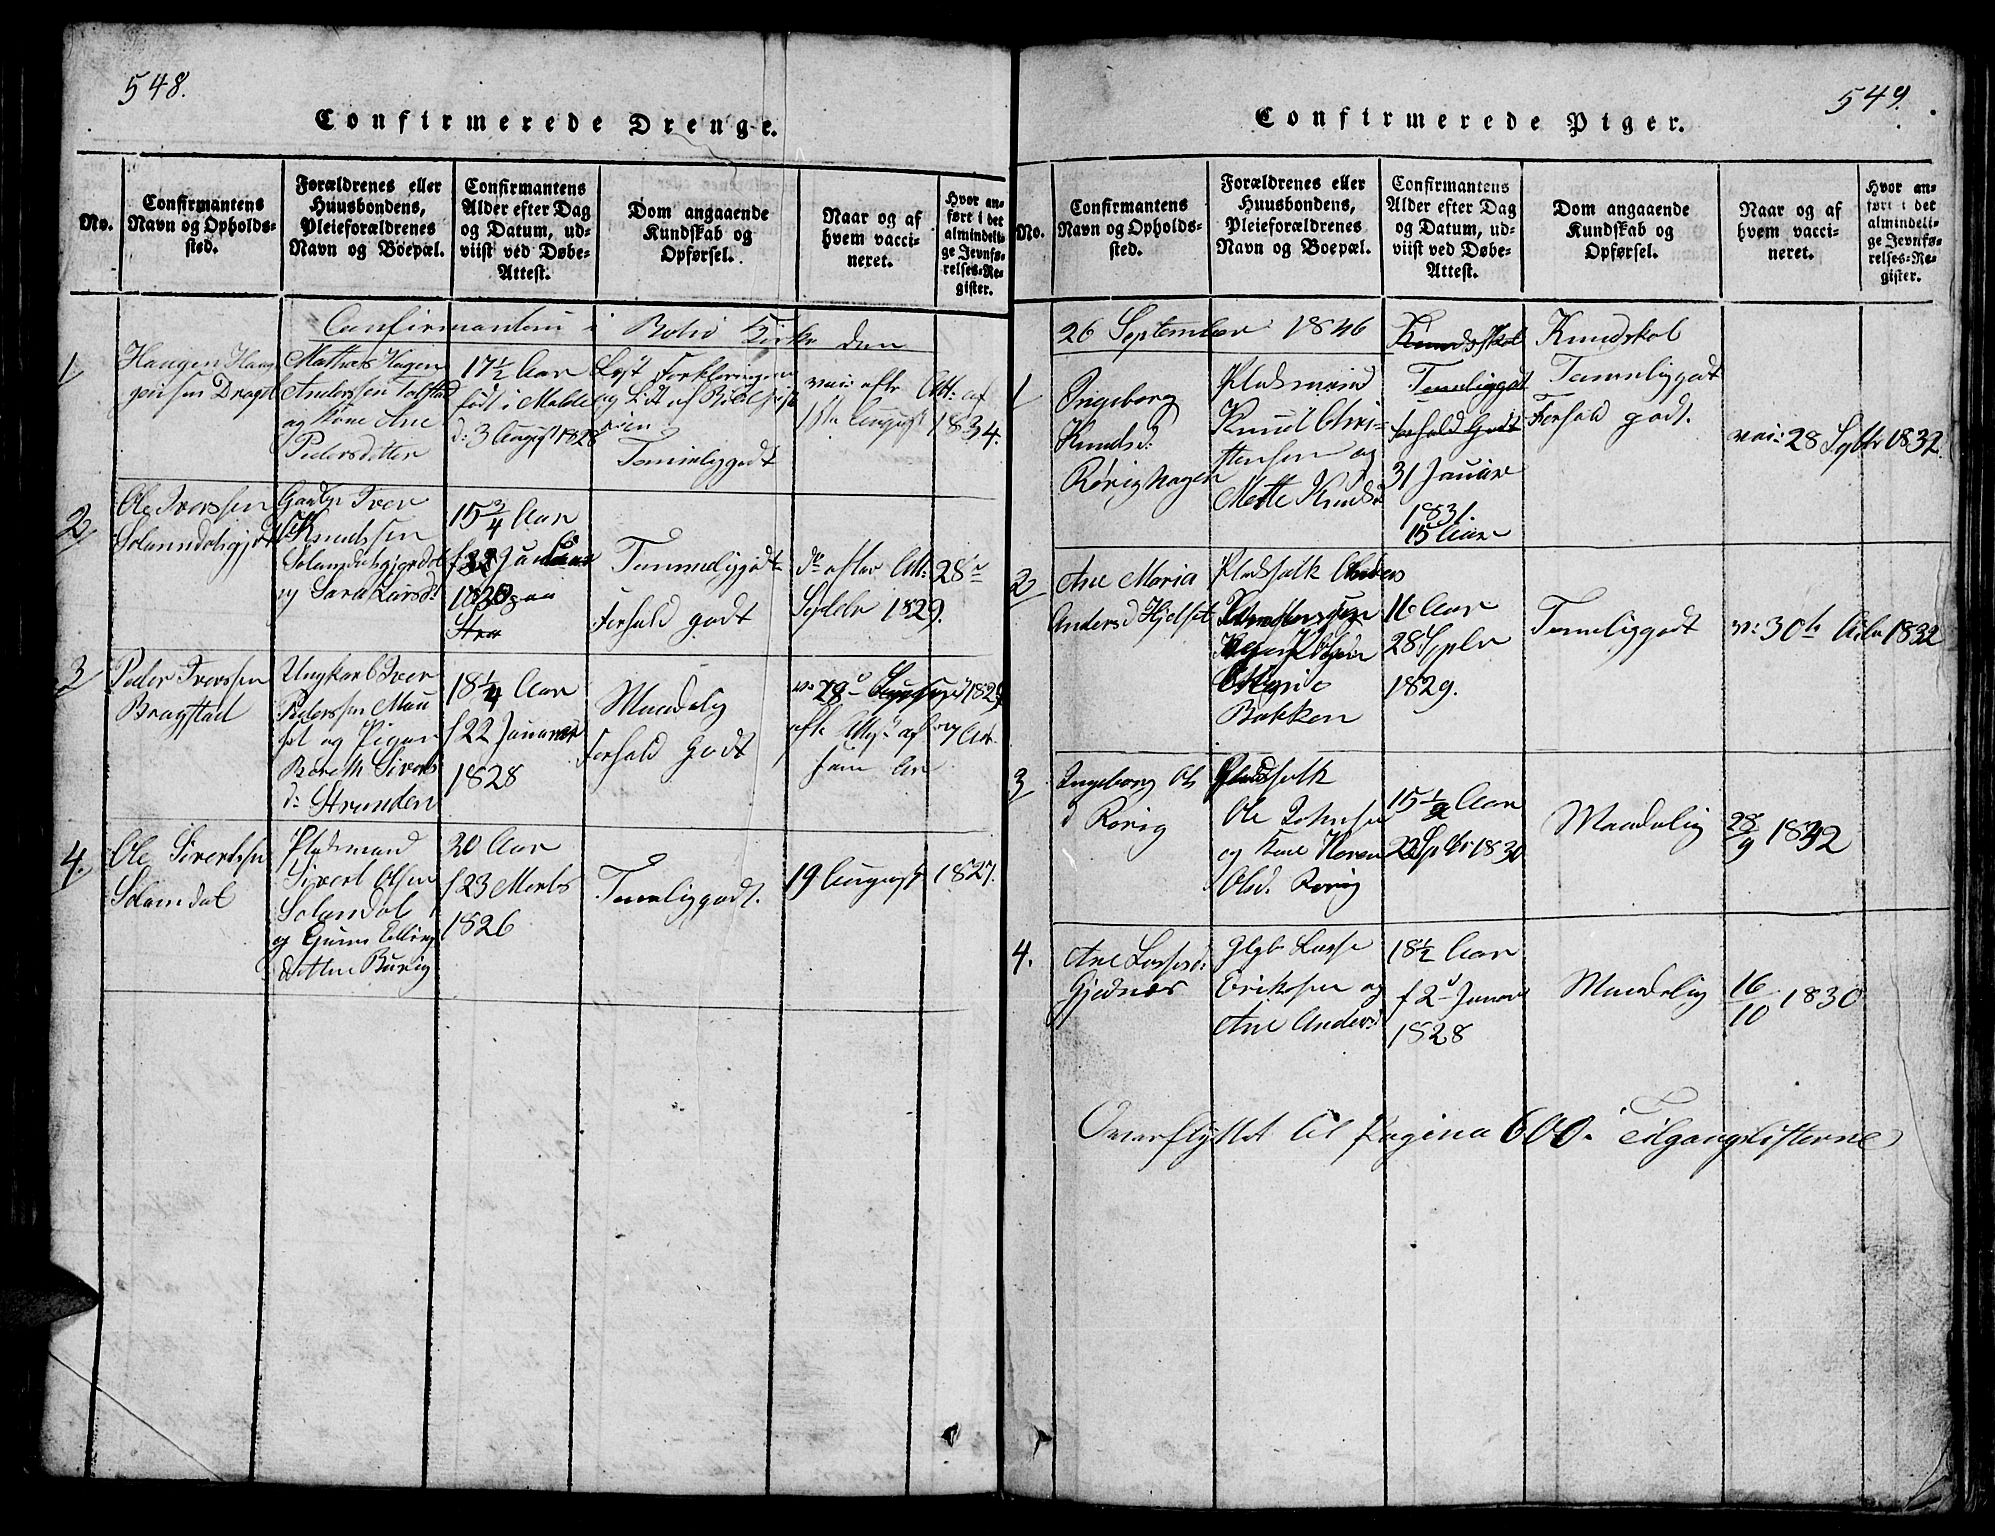 548.
Confirmerede Drenge.
No.
Confirmantens
Navn og Opholds-
sted.
Forældrenes eller
Huusbondens,
Pleieforældrenes
Navn og Boepæl.
Confirmantens
Alder efter Dag
og Datum, ud-
viist ved Døbe-
Attest.
Dom angaaende
Kundskab og
Opførsel.
Naar og af
hvem vacci-
neret.
Hvor an-
ført i det
almindeli-
ge Jevnfø-
relses-Re-
gister.
Confirmanten i Bolsø Kirke den
1
Haagen Haag
Mathæs Hagen
Anderssen
og Kone Ane
Pedersdatter
17½ Aar
født i Molde
d: 3 August 1828
Temmeliggodt
vac: efter Att: af
August 1834.
2
Ole Iverssen
Iver
Knudssen
og Sara Larsd:
15¾ Aar
Temmeliggodt
Forhold godt
do efter Att: 28de
Septbr 1829.
3
Peder Iverssen
Bragstad
Ungkarl Iver
Pederssen
og Pigen
Bereth Siverts
d: Stranden
18¼ Aar
f 22 Januar
1828
Maadelig
Forhold Godt
4.
Ole Sivertssen
Solemdal
Pladsmand
Sivert Olsen
Solemdal
og Guru
datter
20 Aar
f 23 Marts
1826
Temeliggodt.
19 August 1827.
549.
Confirmerede Piger.
No.
Confirmantens
Navn og Opholds-
sted.
Forældrenes eller
Huusbondens,
Pleieforældrenes
Navn og Boepæl.
Confirmantens
Alder efter Dag
og Datum, ud-
viist ved Døbe-
Attest.
Dom angaaende
Kundskab og
Opførsel.
Naar og af
hvem vacci-
neret.
Hvor an-
ført i det
almindeli-
ge Jevnfø-
relses-Re-
gister.
26 September 1846
Kundskab
Kundskab
1
Ingeborg
Knudsd:
Rørighagen
Pladsmand
Knud Chri-
stensen og
Mette Knudsd
Temeliggodt
Forhold Godt
31 Januar
1831.
15 Aar
Temeliggodt
Forhold godt.
vac: 28 Septbr 1832
2
Ane Maria
Andersd Hjelset
Pladsfolk Anders
Bakken
16 Aar
28 Septbr
1829.
Temeliggodt
v: 30te 1832
3
Ingeborg Ols
d Rørig
Pladsfolk
Ole Johnsen
og Kone Maren
Olsd. Rørig
15½ Aar
Septbr 1830
Maadelig
28/9 1832
4.
Ane Lassesd:
Gjednæs
Lasse
Eriksen og
Ane Andersd
18½ Aar
f 2d Januar
1828
Maadelig
16/10 1830
Overflyttet til Pagina 600 i Tilgangslisterne